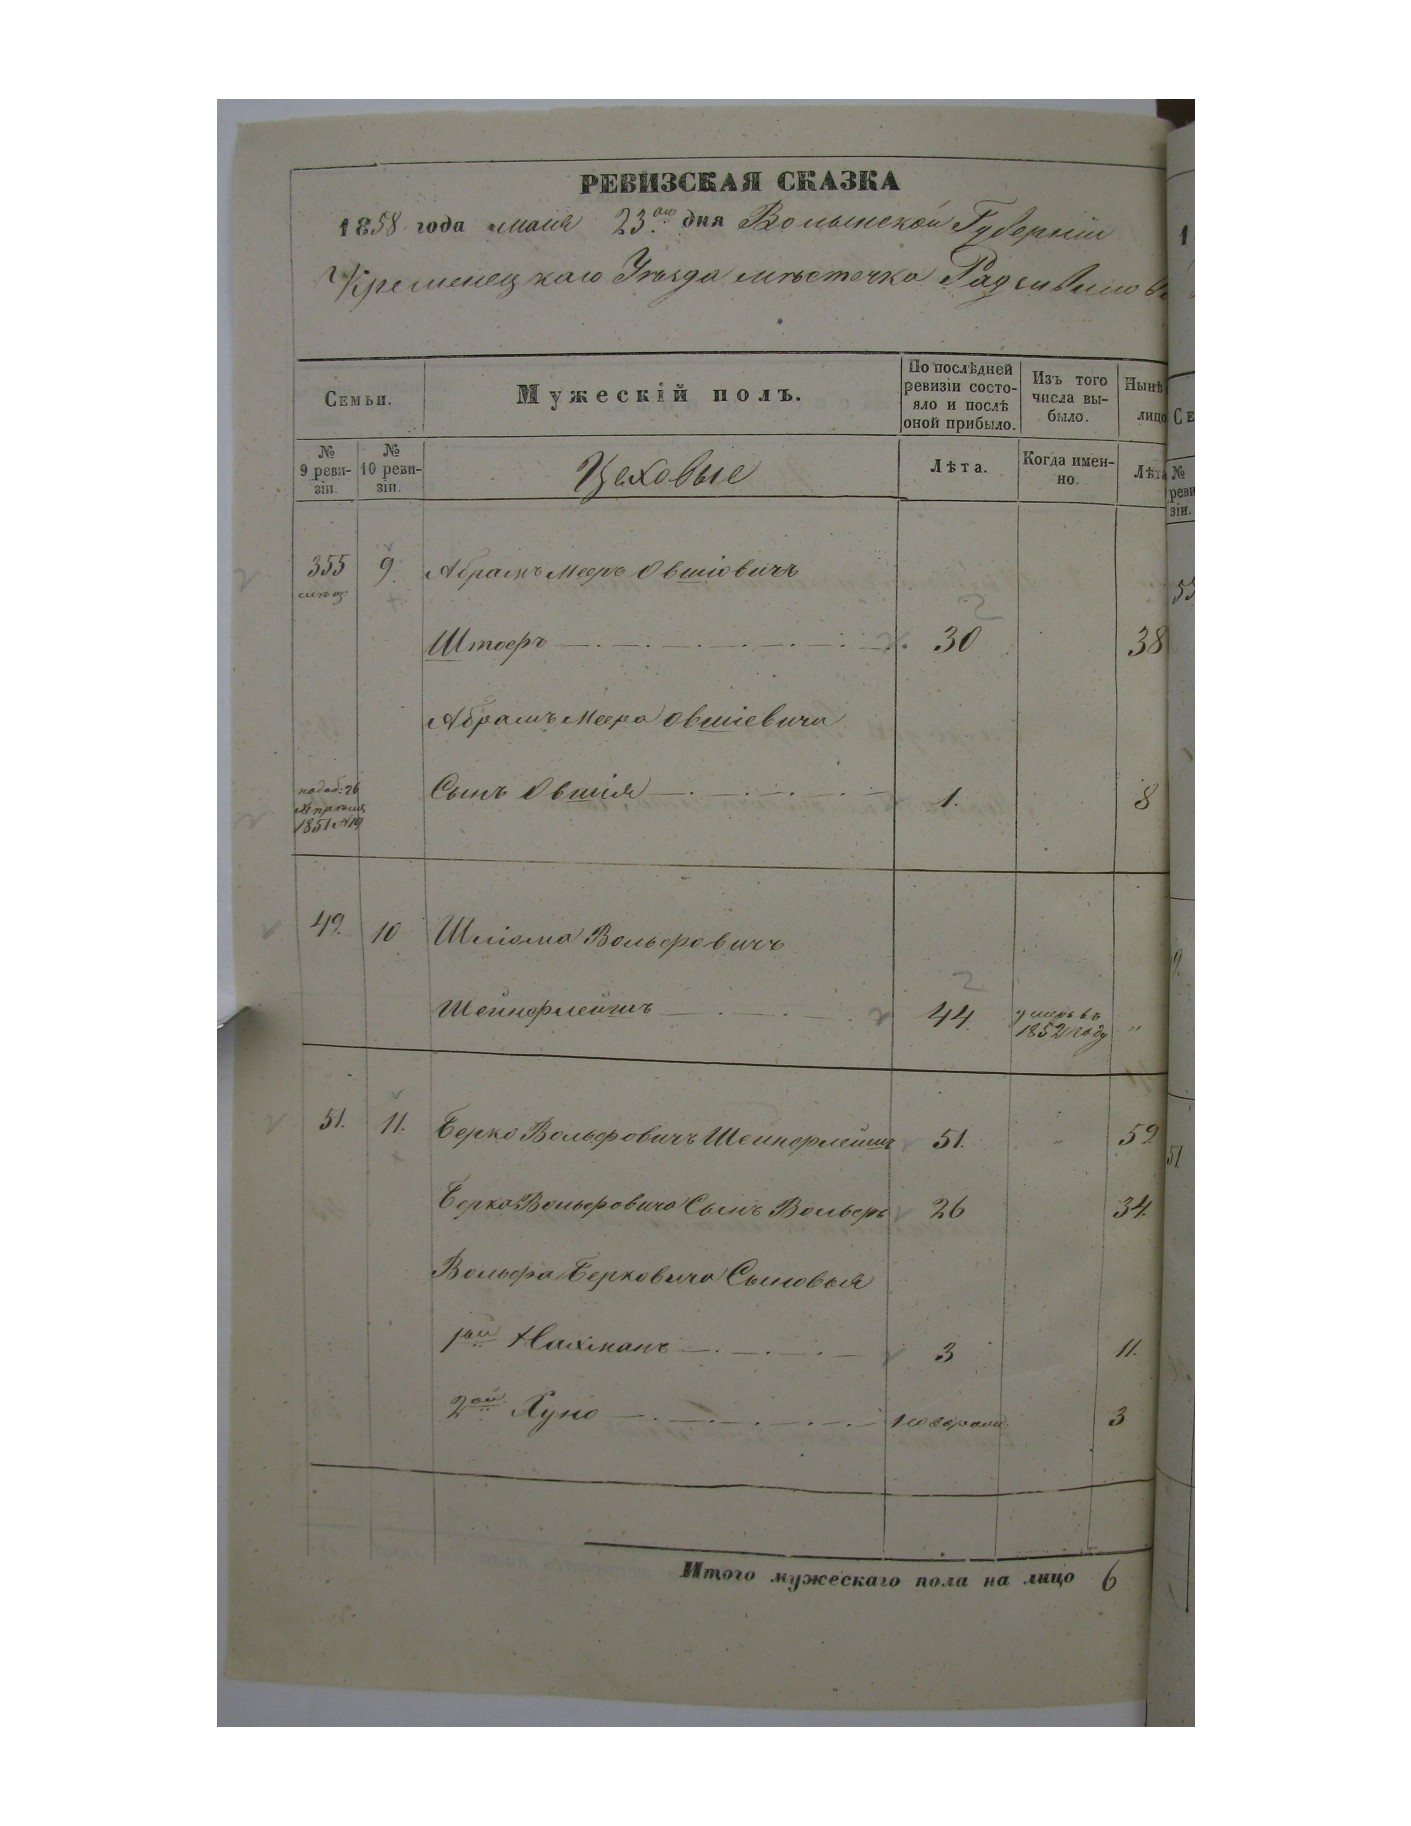 РЕВИЗСКАЯ СКАЗКА
1858 года маія 23.го дня Волынской Губерніи
Кременецкаго Уѣзда мѣстечка Радзивилова
Семьи.
Мужескій полъ.
По послѣдней ревизіи состояло и послѣ оной прибыло.
Изъ того числа выбыло.
Нынѣ
лицо
№ 9 ревизіи.
№ 10 ревизіи.
Цеховые
Лѣта.
Когда именно.
Лѣта
355 9. Абрамъ Мееръ Овшіовичъ
Штофъ — . — . — 30 38
Абрамъ Меера Овшіевича
Сынъ Овшія — . — . — 1. 8
1851 № 19
49. 10 Шліома Вольфовичъ
Шейнфлейшъ — . — . 44. умеръ въ 1852 году "
51. 11. Берко Вольфовичъ Шейнфлейшъ 51. " 59.
Берка Вольфовича Сынъ Вольфъ 26 34.
Вольфа Берковича Сыновья
1ый Нахманъ — . — . — 3 11.
2ой Хуно — . — . — новорожд. 3
Итого мужескаго пола на лицо 6